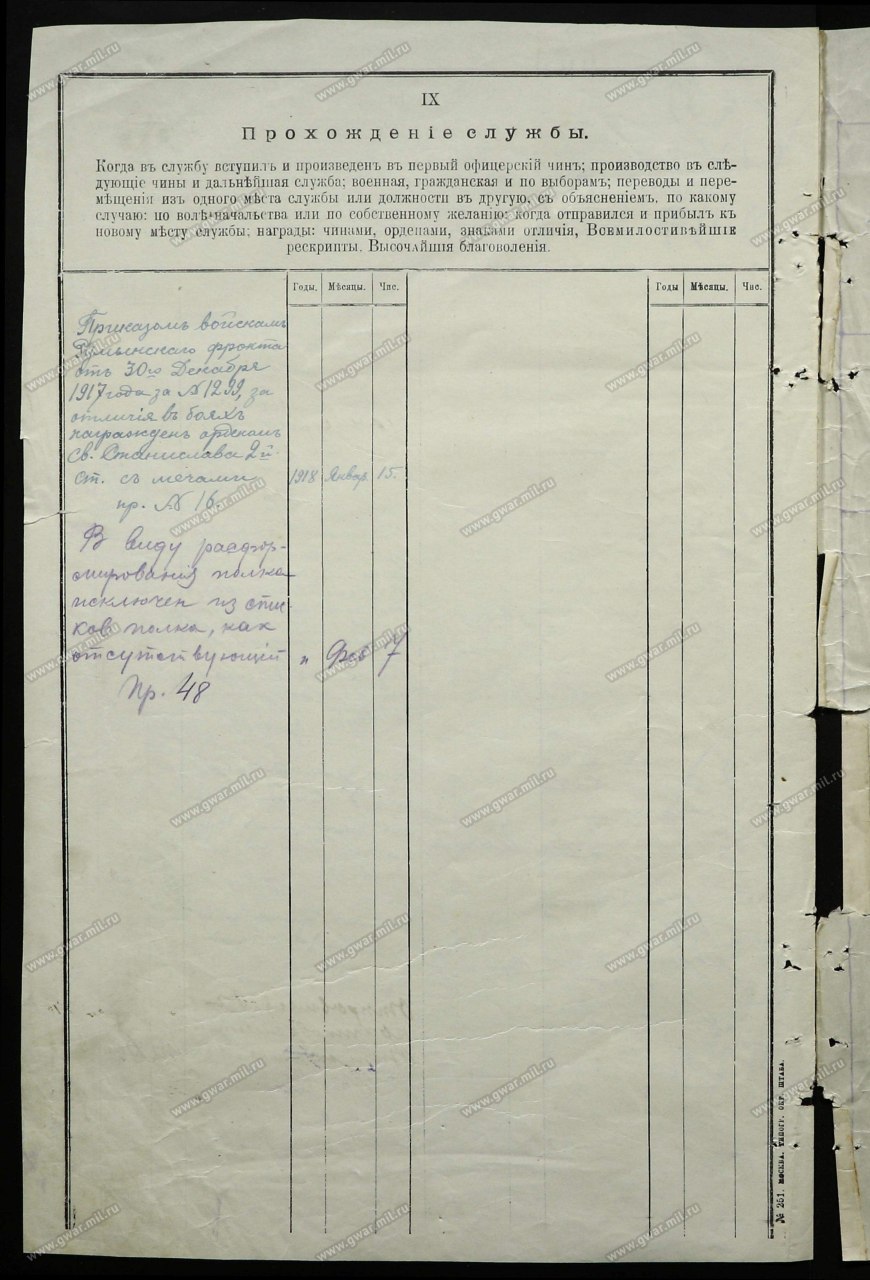 IX
Прохожденіе службы.
Когда въ службу вступилъ и произведенъ въ первый офицерскій чинъ; производство въ слѣ-
дующіе чины и дальнѣйшая служба; военная, гражданская и по выборамъ; переводы и пере-
мѣщенія изъ одного мѣста службы или должности въ другую, съ объясненіемъ, по какому
случаю: по волѣ начальства или по собственному желанію; когда отправился и прибылъ къ
новому мѣсту службы; награды: чинами, орденами, знаками отличія, Всемилостивѣйшіе
рескрипты. Высочайшія благоволенія.
Годы. Мѣсяцы. Чис. Годы Мѣсяцы. Чис.
Приказомъ войскамъ
Румынскаго фронта
отъ 30го Декабря
1917 года за № 1299, за
отличія въ бояхъ
награжденъ орденомъ
Св. Станислава 2й
ст. съ мечами 1918 Январ. 15.
пр. № 16.
В виду расфор-
мирования полка
исключен из спис-
ков полка, как
отсутствующий " Фев 7
Пр. 48
№ 251. МОСКВА. ТИПОГР. ОКР. ШТАБА.
www.gwar.mil.ru